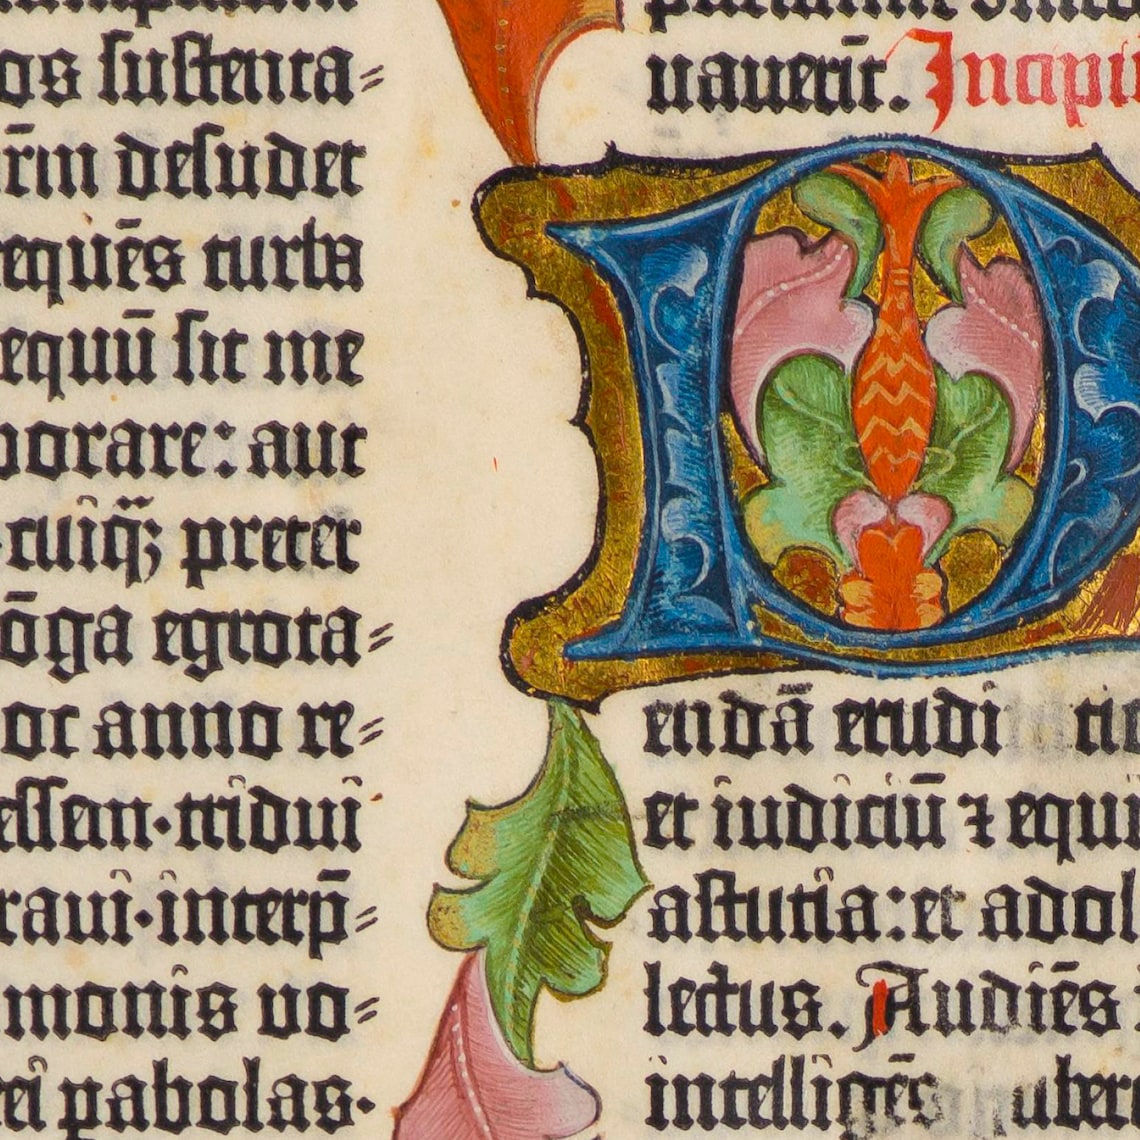 os sustenta=
rin desudet
requēs turba
equū sit me
borare: aut
cuiq̄; preter
ōga egrota=
or anno re=
essem·tridui
raui·interp̄=
monis uo=
ei pabolas·
uauerīt. Incipi
D
endā erudi ti
et iudiciū ⁊ equi
astutia: et adol
lectus. Audiēs
intelligēs uber